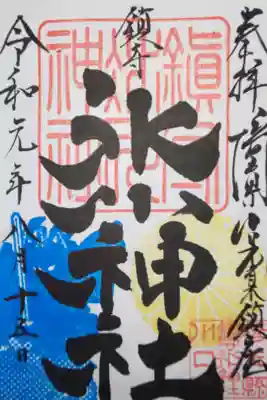 奉拝
鎮座
鎮守
氷川神社
鎮守
氷川
神社
令和元年八月十五日